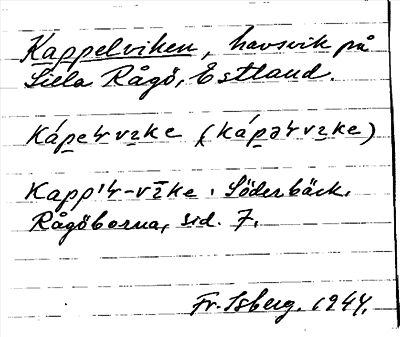 Kappelviken, havsvik på
Lilla Rågö, Estland.
Kápeʹrvɩke (kápəʹrvɩke)
Kappʹr-vīke. Söderbäck.
Rågöborna, sid. 7.
Fr. Isberg. 1944.